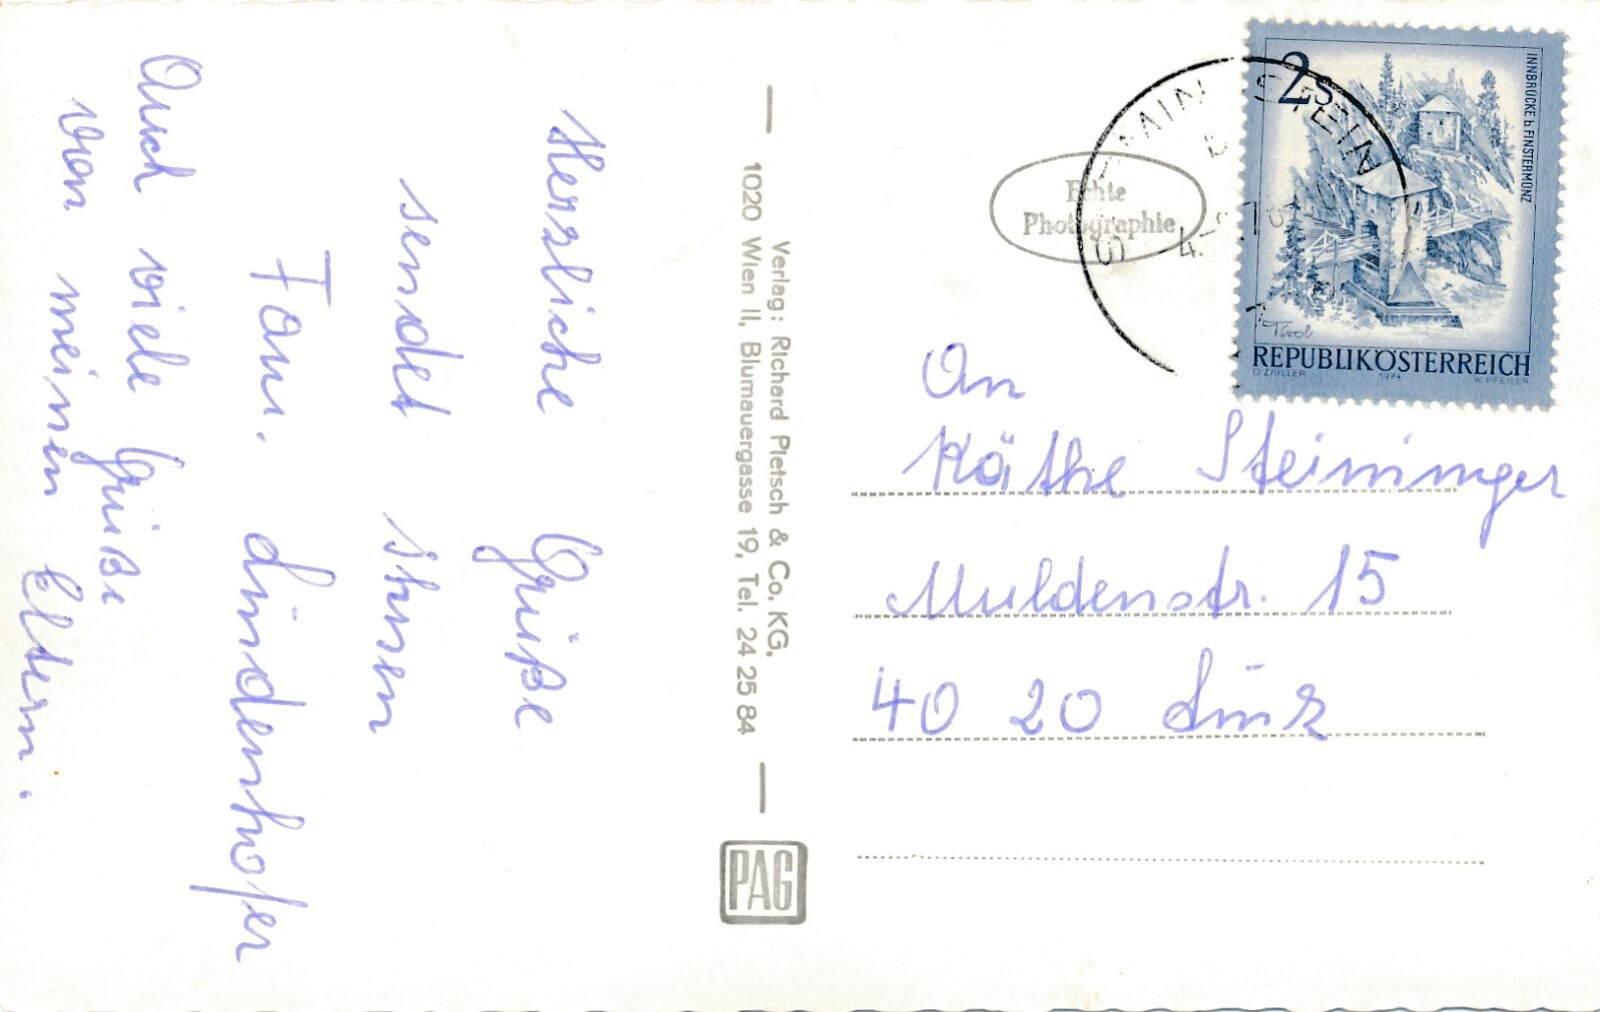 Herzliche Grüße
sendet Ihnen
Fam. Lindenhofer
Auch viele Grüße
von meinen Eltern.
Verlag: Richard Pietsch & Co. KG,
1020 Wien II, Blumauergasse 19, Tel. 24 25 84
PAG
Echte
Photographie
2S
INNBRÜCKE b. FINSTERMÜNZ
Tirol
REPUBLIK ÖSTERREICH
O. ZEILLER 1974 W. PFEILER
An
Käthe Steininger
Muldenstr. 15
40 20 Linz